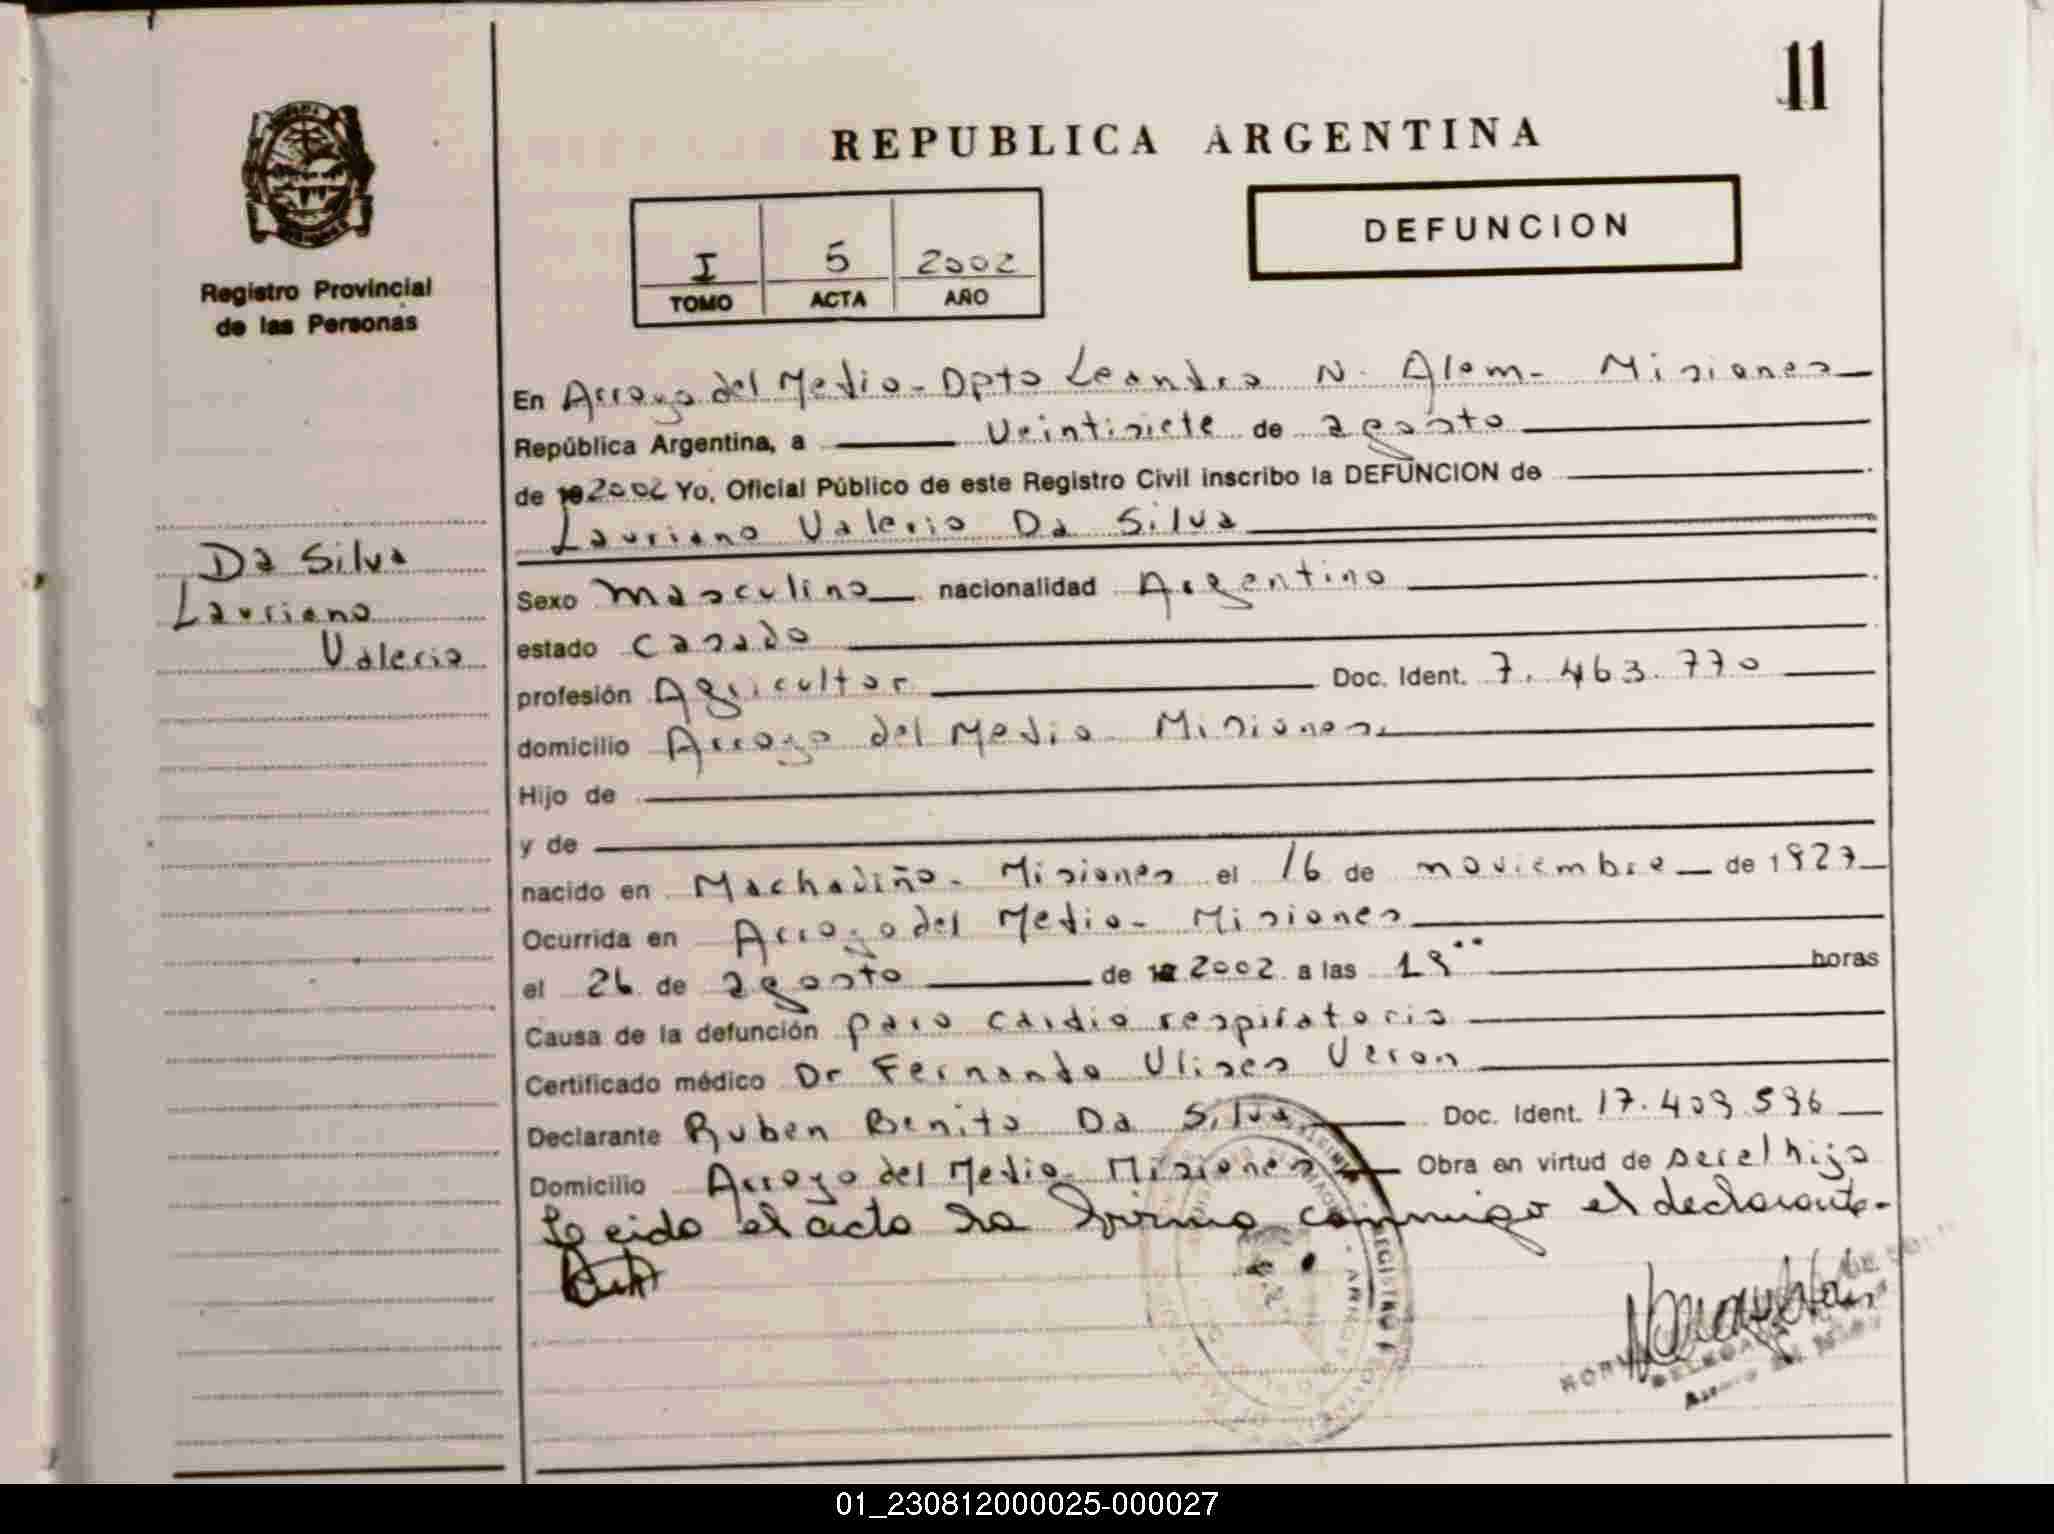 11
REPUBLICA ARGENTINA
DEFUNCION
I 5 2002
TOMO ACTA AÑO
Registro Provincial
de las Personas
Da Silva
Lauriano
Valerio
En Arroyo del Medio - Dpto Leandro N. Alem - Misiones
República Argentina, a Veintisiete de agosto
de 2002 Yo, Oficial Público de este Registro Civil inscribo la DEFUNCION de
Lauriano Valerio Da Silva
Sexo Masculino nacionalidad Argentino
estado Casado
profesión Agricultor Doc. Ident. 7.463.770
domicilio Arroyo del Medio - Misiones
Hijo de
y de
nacido en Machadiño - Misiones el 16 de noviembre de 1927
Ocurrida en Arroyo del Medio - Misiones
el 26 de agosto de 2002 a las horas
Causa de la defunción paro cardio respiratorio
Certificado médico Dr Fernando Ulises Veron
Declarante Ruben Benito Da Silva Doc. Ident. 17.409.596
Domicilio Arroyo del Medio - Misiones Obra en virtud de ser el hijo
Leido el acta la firma conmigo el declarante.-
01_230812000025-000027